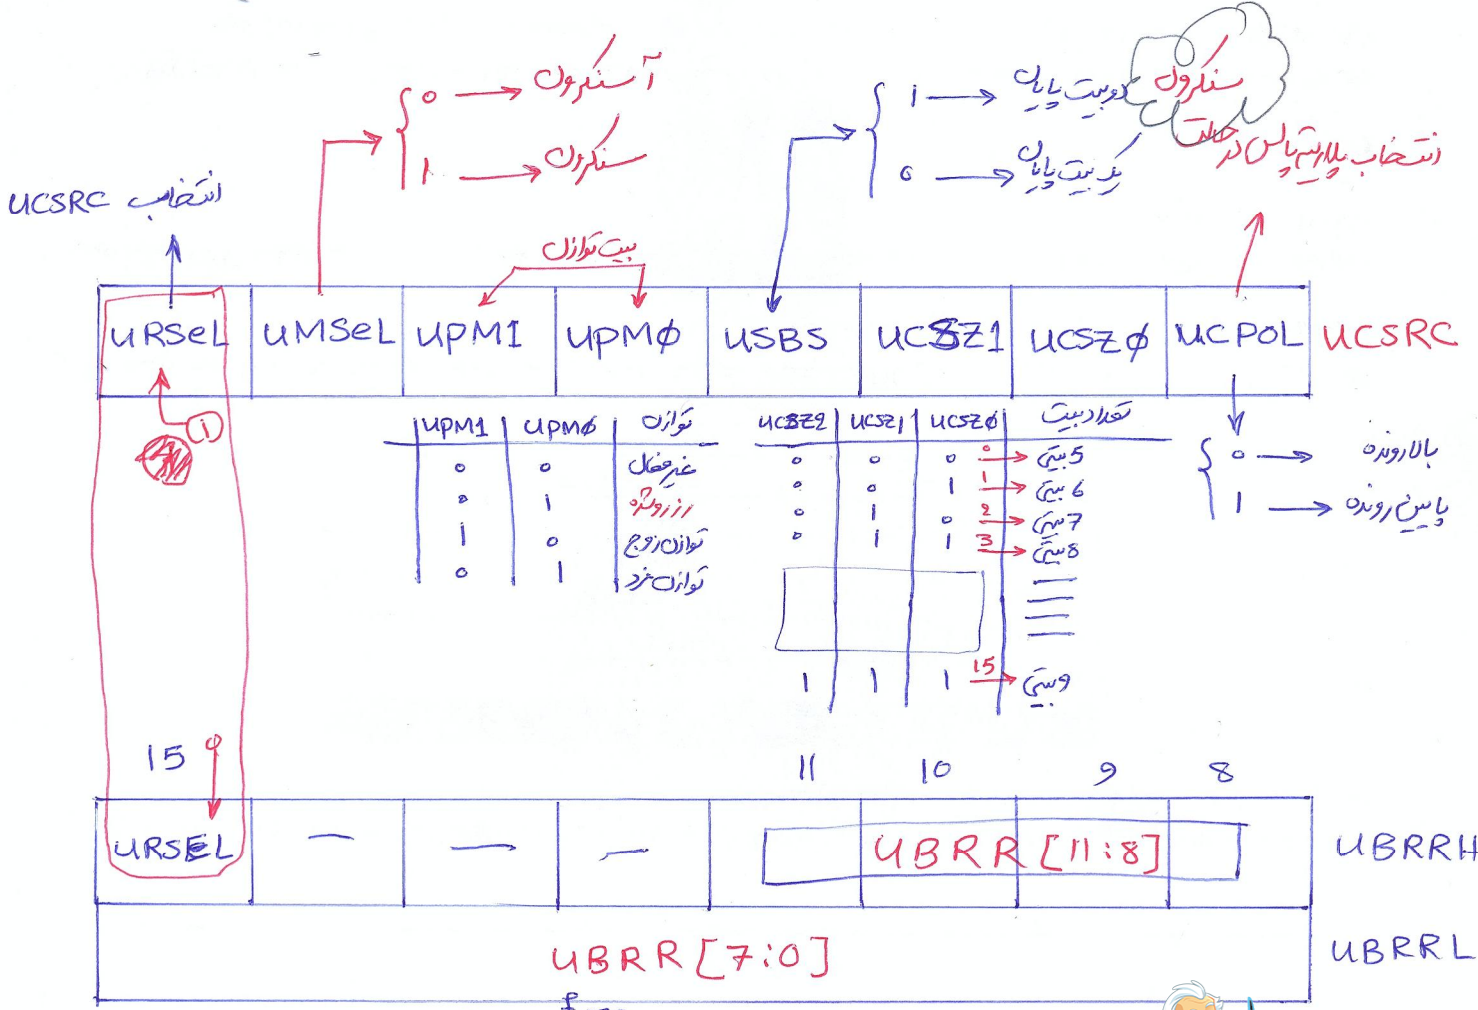 آسنکرون ← 0
سنکرون ← 1
1 → دو بیت پایان
0 → یک بیت پایان
سنکرون
انتخاب پلاریته پالس در حالت
انتخاب UCSRC
بیت توازن
URSEL UMSEL UPM1 UPMØ USBS UCSZ1 UCSZØ UCPOL UCSRC
1
UPM1 UPMØ توازن
0 0 غیرفعال
0 1 رزرو شده
1 0 توازن زوج
0 1 توازن فرد
UCSZ2 UCSZ1 UCSZØ تعداد بیت
0 0 0 0 → 5 بیتی
0 0 1 1 → 6 بیتی
0 1 0 2 → 7 بیتی
0 1 1 3 → 8 بیتی
1 1 1 15 → 9 بیتی
0 → بالا رونده
1 → پایین رونده
15 0 11 10 9 8
URSEL — — — UBRR [11:8] UBRRH
UBRR [7:0] UBRRL